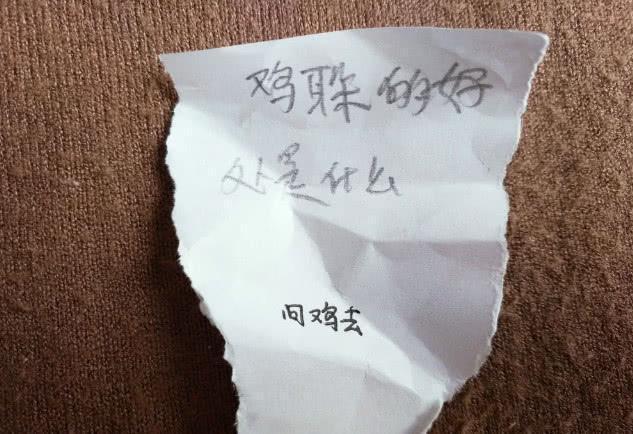 鸡躲的好
处是什么
问鸡去